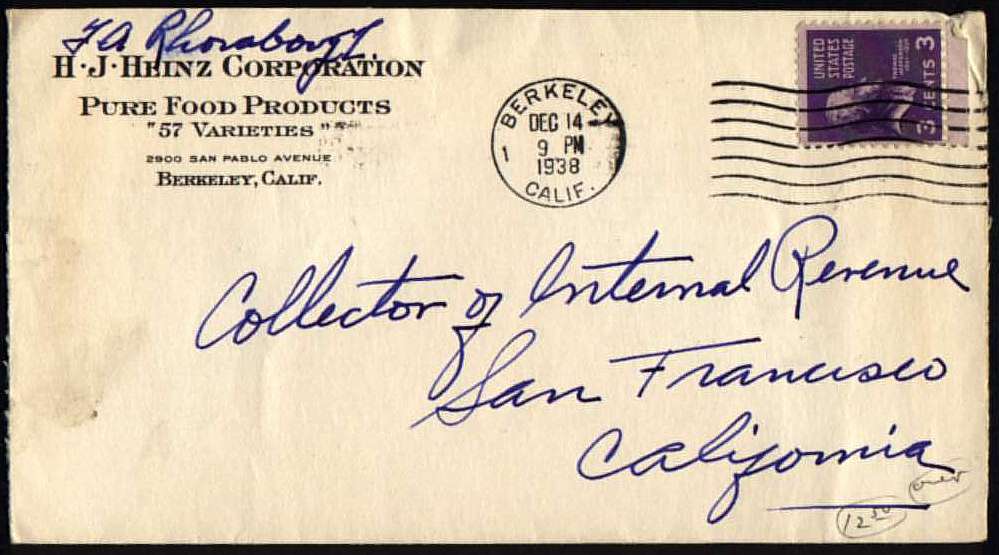 F A
H·J·HEINZ CORPORATION
PURE FOOD PRODUCTS
"57 VARIETIES"
2900 SAN PABLO AVENUE
BERKELEY, CALIF.
BERKELEY
DEC 14
9 PM
1938
1
CALIF.
UNITED
STATES
POSTAGE
3 CENTS 3
Collector of Internal Revenue
San Francisco
California
over
12 50